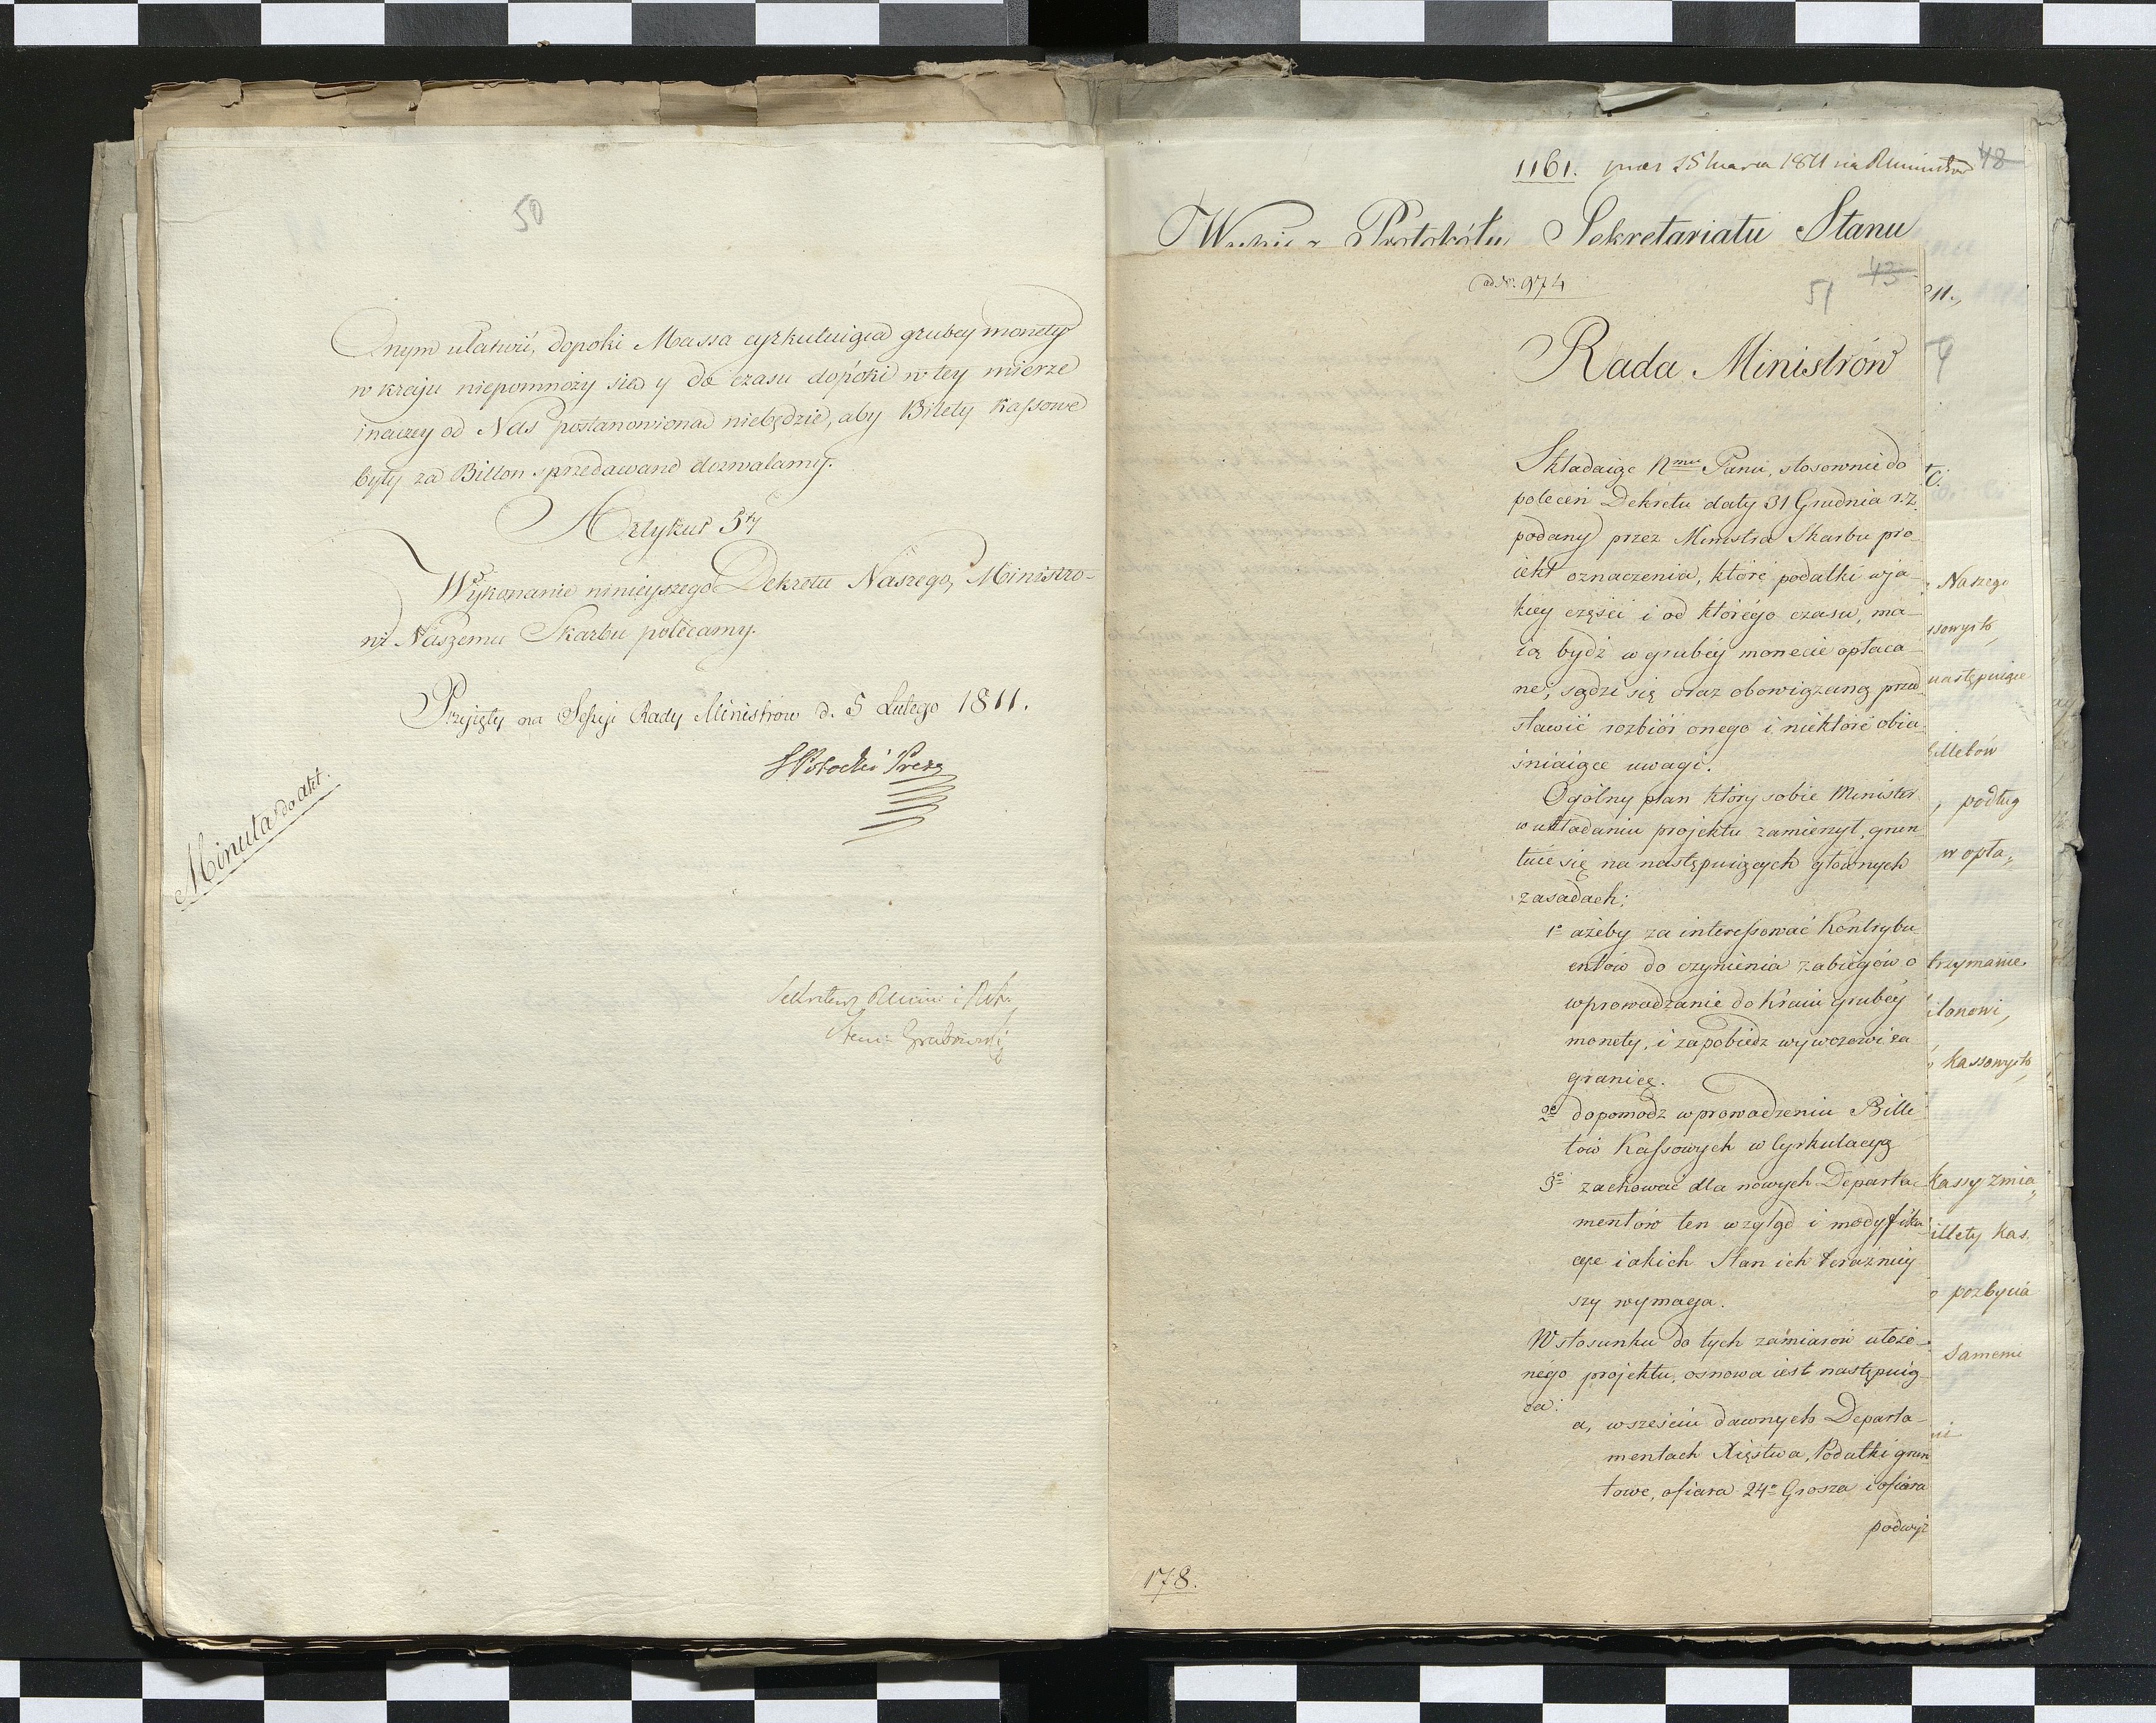 50
Onym ułatwić, dopoki Massa cyrkuluiąca grubey monety
w kraju niepomnoży się y do czasu dopóki w tey mierze
inaczey od Nas postanowiono niebędzie, aby Bilety Kassowe
były za Billon sprzedawane dozwalamy.
Artykuł 5ty
Wykonanie ninieyszego Dekretu Naszego, Ministro-
wi Naszemu Skarbu polecamy.
Przyięty na Sessyi Rady Ministrow d. 5 Lutego 1811.
Potocki Prez
Minuta do akt.
Sekretarz
Grabowski
1161. 1811
48
Wypis z Protokółu Sekretariatu Stanu
ad No. 974
43
51
Rada Ministrów
Składaiąc Nmu Panu, stosownie do
poleceń Dekretu daty 31 Grudnia r. z.
podany przez Ministra Skarbu pro-
iekt oznaczenia, które podatki w ja-
kiey części i od którégo czasu, ma-
ią bydź w grubéy monecie opłaca-
ne, sądzi się oraz obowiązaną przed-
stawić rozbiór onego i niektóré obia-
śniaiące uwagi.
Ogólny plan który sobie Minister
w układaniu projektu zamierzył, grun-
tuie się na następuiących głównych
zasadach:
1o ażeby zainteressować Kontrybu
entów do czynienia zabiegów o
wprowadzanie do Kraiu grubéy
monety, i zapobiedz wywozowi za
granicę.
2o dopomódz wprowadzeniu Bille
tów Kassowych w Cyrkulacyą
3o zachować dla nowych Departa-
mentów ten wzgląd i modyfika-
cye iakich Stan ich teraźniey
szy wymaga.
W stosunku do tych zamiarów ułożo-
négo projektu, osnowa iest następuią-
ca:
a, w sześciu dawnych Departa-
mentach Xięstwa, Podatki grun
towe, ofiara 24o Grosza i ofiara
podwyż
178.
Naszego
ssowych,
następuiące
Billetów
, podług
w opła,
trzymanie.
ilonowi,
kassowych,
Kassy zmia,
illety Kas.
pozbycia
Samemu